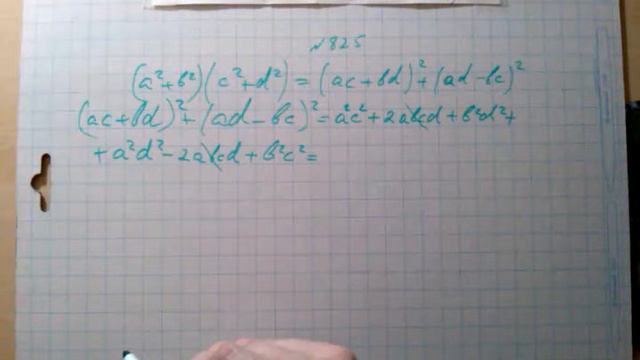 №825
(a²+b²)(c²+d²) = (ac+bd)²+(ad-bc)²
(ac+bd)²+(ad-bc)²=a²c²+2abcd+b²d²+
+a²d²-2abcd+b²c²=